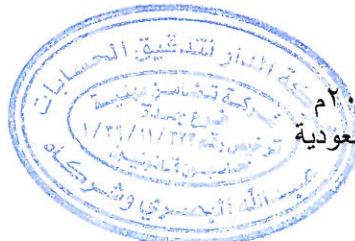 شركة المدار لتدقيق الحسابات
شركة تضامن مهنية
فرع جدة
ترخيص رقم ٣٢٣/١١/٣٦/١
محاسبون قانونيون
عبدالله البصري وشركاه
٢٠م
عودية